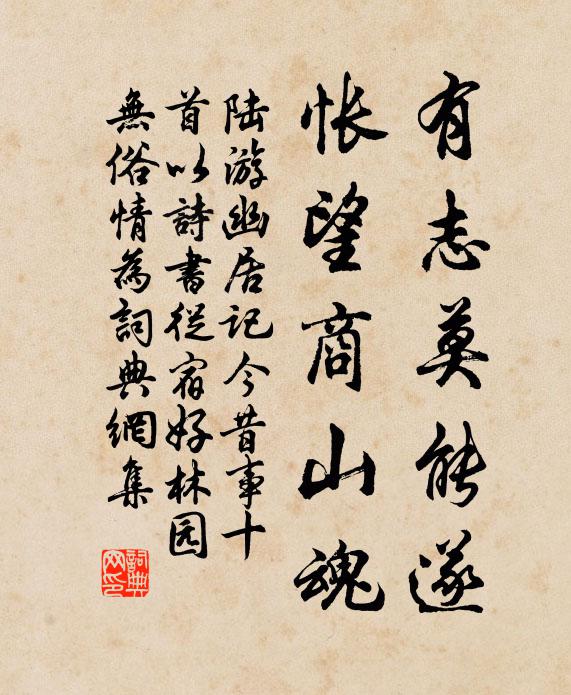 有志莫能遂
悵望商山魂
陆游幽居记今昔事十
首以詩書從宿好林园
無俗情為詞典網集
詞典
网印